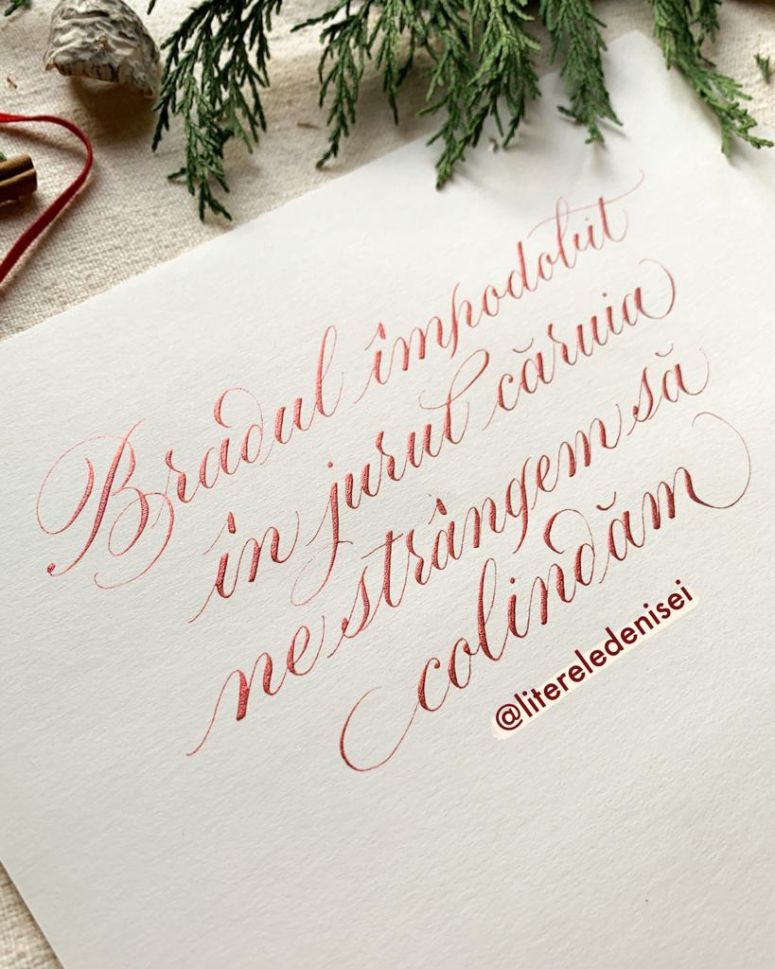 Bradul împodobit
în jurul căruia
ne strângem să
colindăm
@ītereledenisei